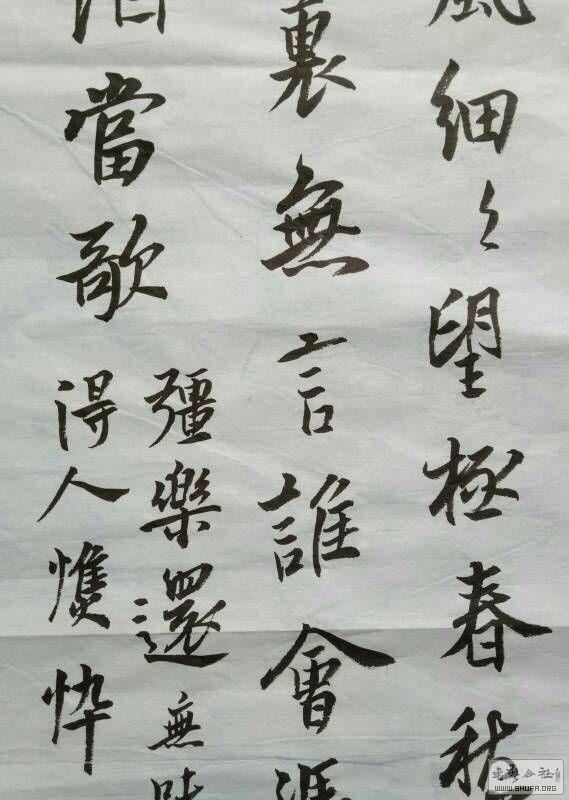 風細々望極春愁
裏無言誰會憑
酒當歌
彊樂還無味
得人憔忰
書藝公社
WWW.SHUFA.ORG